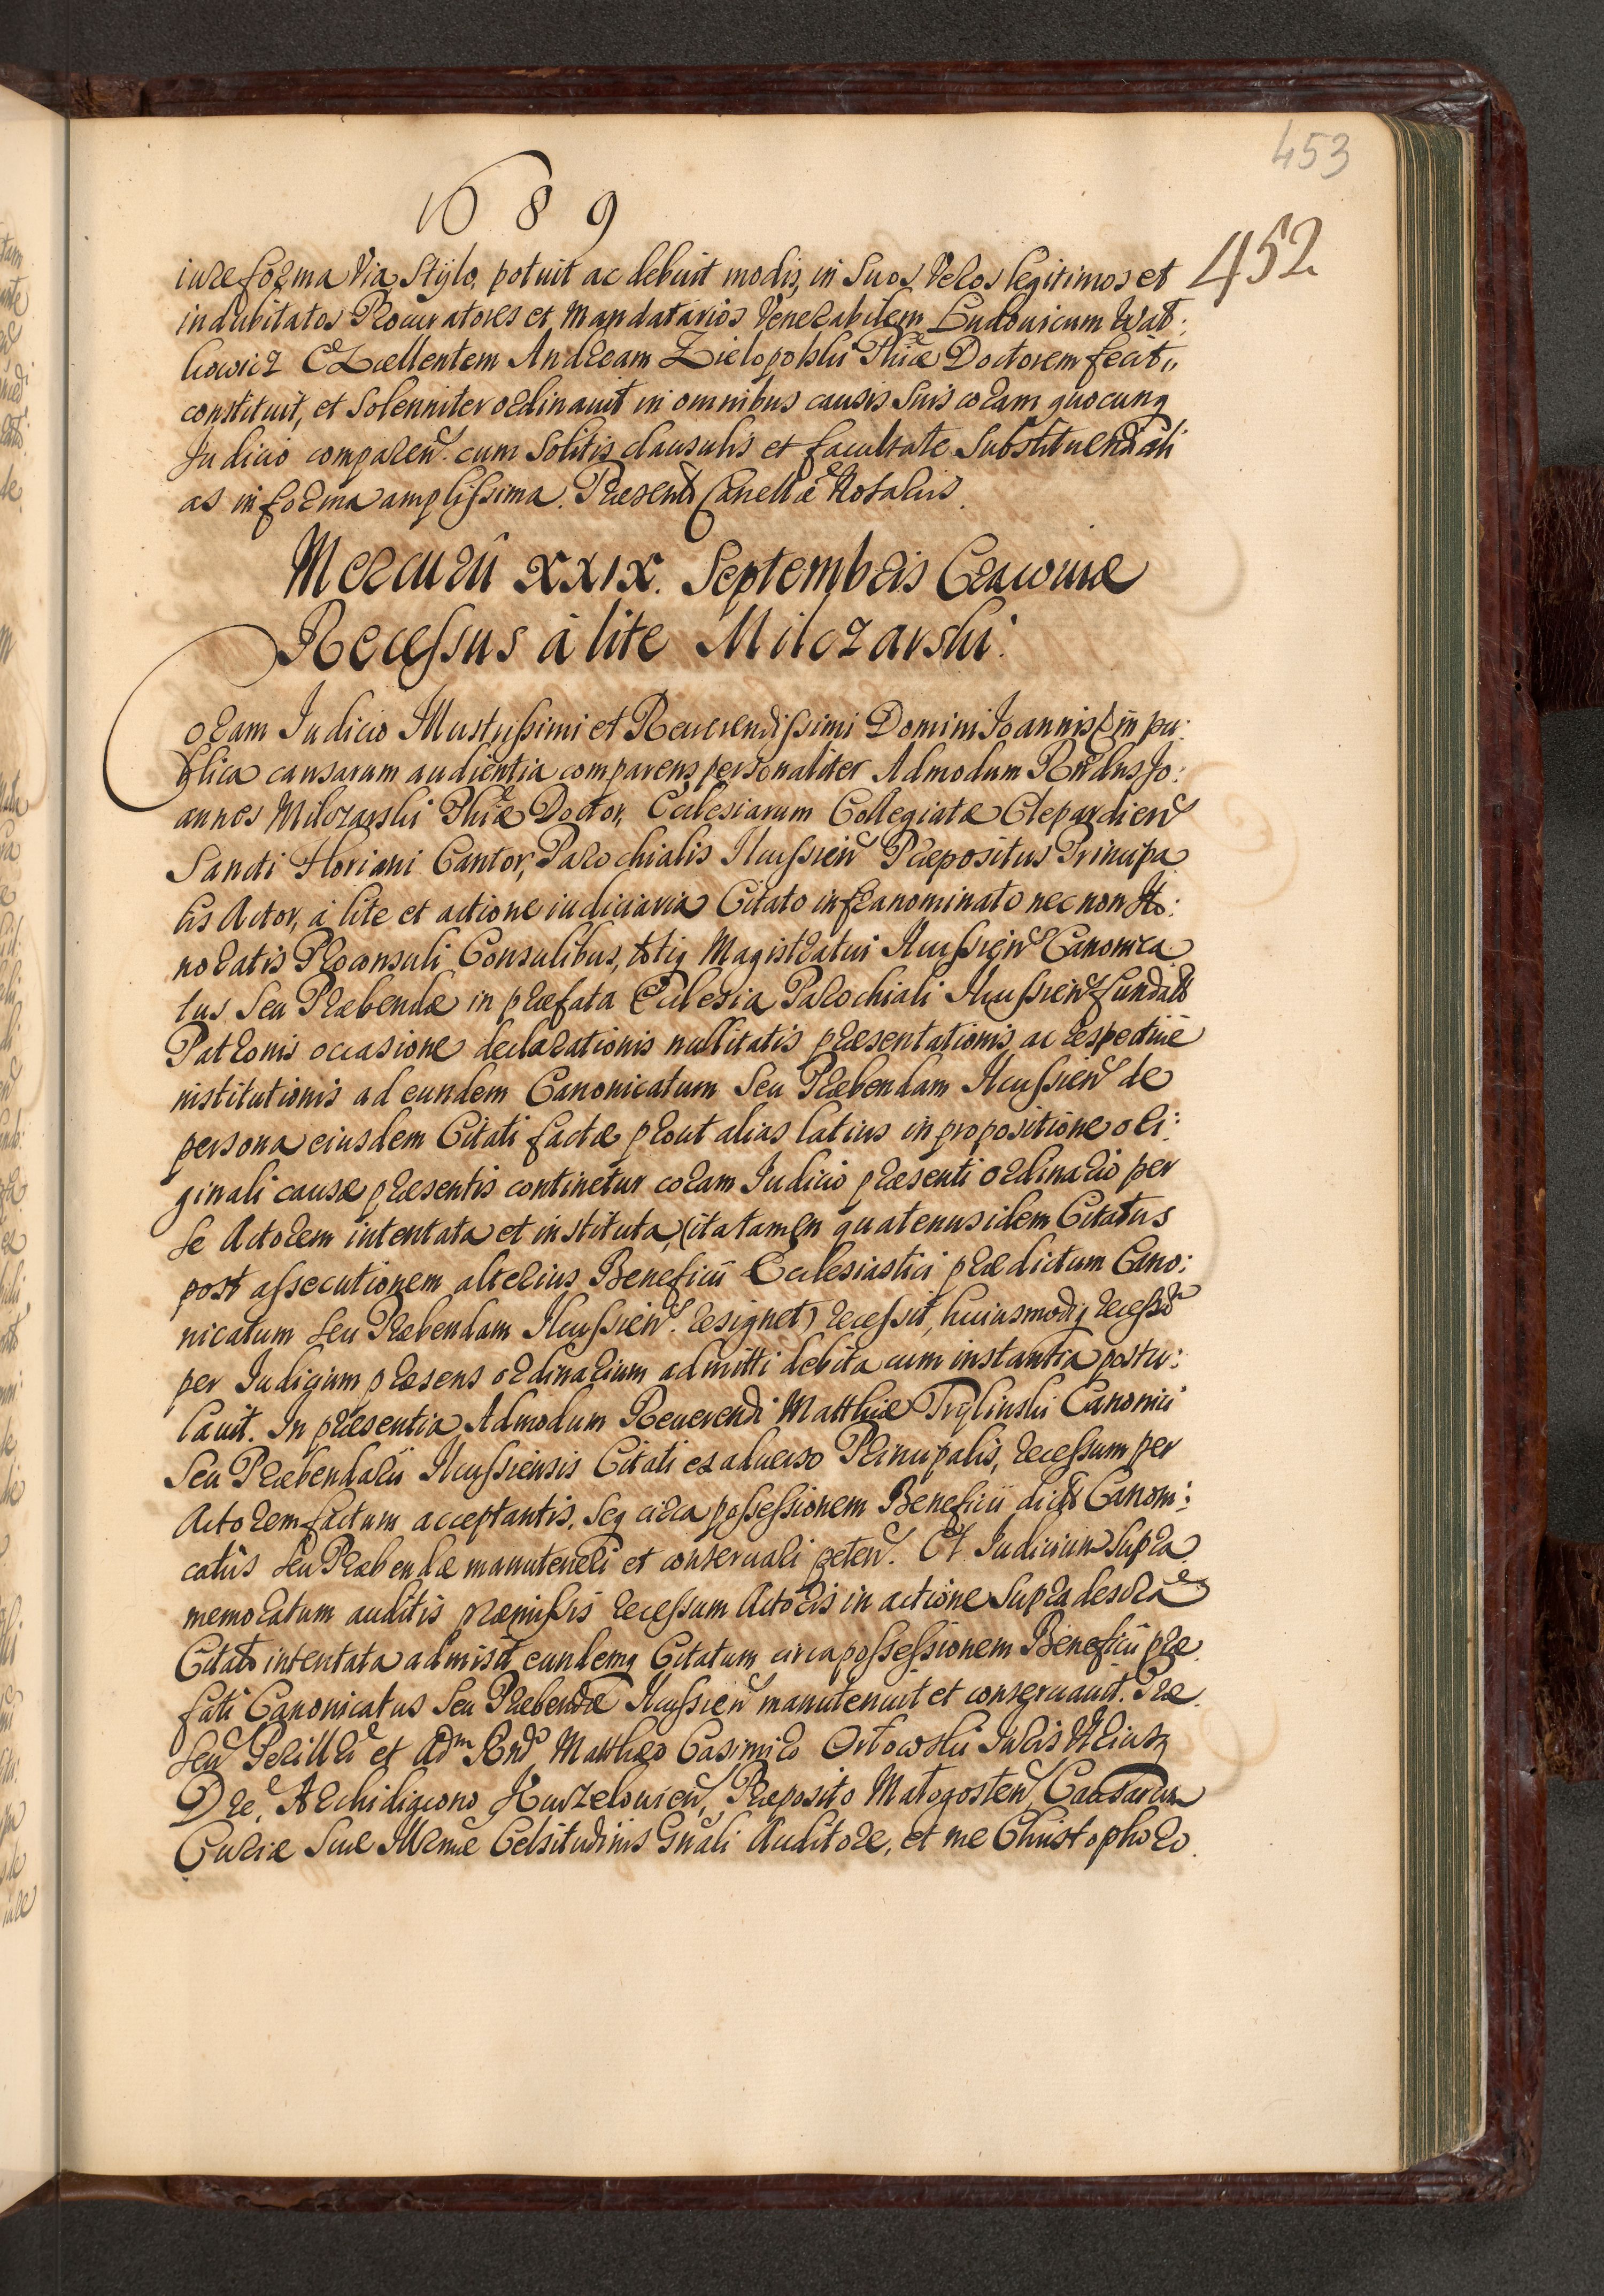 453
1689
452
iure forma via Stylo, potuit ac debuit modis, in Suos Veros legitimos et
indubitatos Procuratores et Mandatarios Venerabilem Ludouicum Wat:
kowicz Excellentem Andream Zielopolski Phiae Doctorem fecit,,
constituit, et Solenniter ordinauit in omnibus causis Suis coram quocunq
Judicio comparen. cum Solitis clausulis et facultate Substituendi ali
as in forma amplissima. Praesent Cancellae Notariis.
Mercurii XXIX. Septembris Cracoviae
Recessus à lite Milczarski.
Coram Judicio Illustrissimi et Reuerendissimi Domini Joannis in pu:
blica causarum audientia comparens personaliter Admodum Rndus Jo:
annes Milczarski Phiae Doctor, Ecclesiarum Collegiatae Clepardien
Sancti Floriani Cantor, Parochialis Ilcussien Praepositus Principa
lis Actor, à lite et actione iudiciaria Citato infranominato nec non Ho:
noratis Proconsuli Consulibus, totiq Magistratui Ilcussien Canonica
tus Seu Praebendae in praefata Ecclesia Parochiali Ilcussien fundati
Patronis occasione declarationis nullitatis praesentationis, ac respectiuè
institutionis ad eundem Canonicatum Seu Praebendam Ilcussien de
persona eiusdem Citati factae prout alias latius in propositione ori:
ginali causae praesentis continetur coram Judicio praesenti ordinario per
se Actorem intentata et instituta, (ita tamen quatenus idem Citatus
post assecutionem alterius Beneficii Ecclesiastici praedictum Cano:
nicatum seu Praebendam Ilcussien. resignet) recessit, huiusmodiq recessu
per Judicium praesens ordinarium admitti debita cum instantia postu:
lauit. In praesentia Admodum Reuerendi Matthiae Trylinski Canonici
Seu Praebendarii Ilcussiensis Citati ex aduerso Principalis, recessum per
Actorem factum acceptantis, Seq circa possessionem Beneficii dicti Canoni:
catûs seu Praebendae manuteneri et conseruari peten. Et Judicium Supra
memoratum auditis praemissis recessum Actoris in actione Supra descrae
Citato intentata admisit eundemq Citatum circa possessionem Beneficii prae
fati Canonicatus Seu Praebendae Ilcussien manutenuit et conseruauit. Prae
sen Perillri et Adm Rndo Matthaeo Casimiro Orłowski Juris Vtriusq
Dre, Archidiacono Kurzelouien, Praeposito Małogosten, Causarum
Curiae Suae Illrmae Celsitudinis Gnali Auditore, et me Christophoro